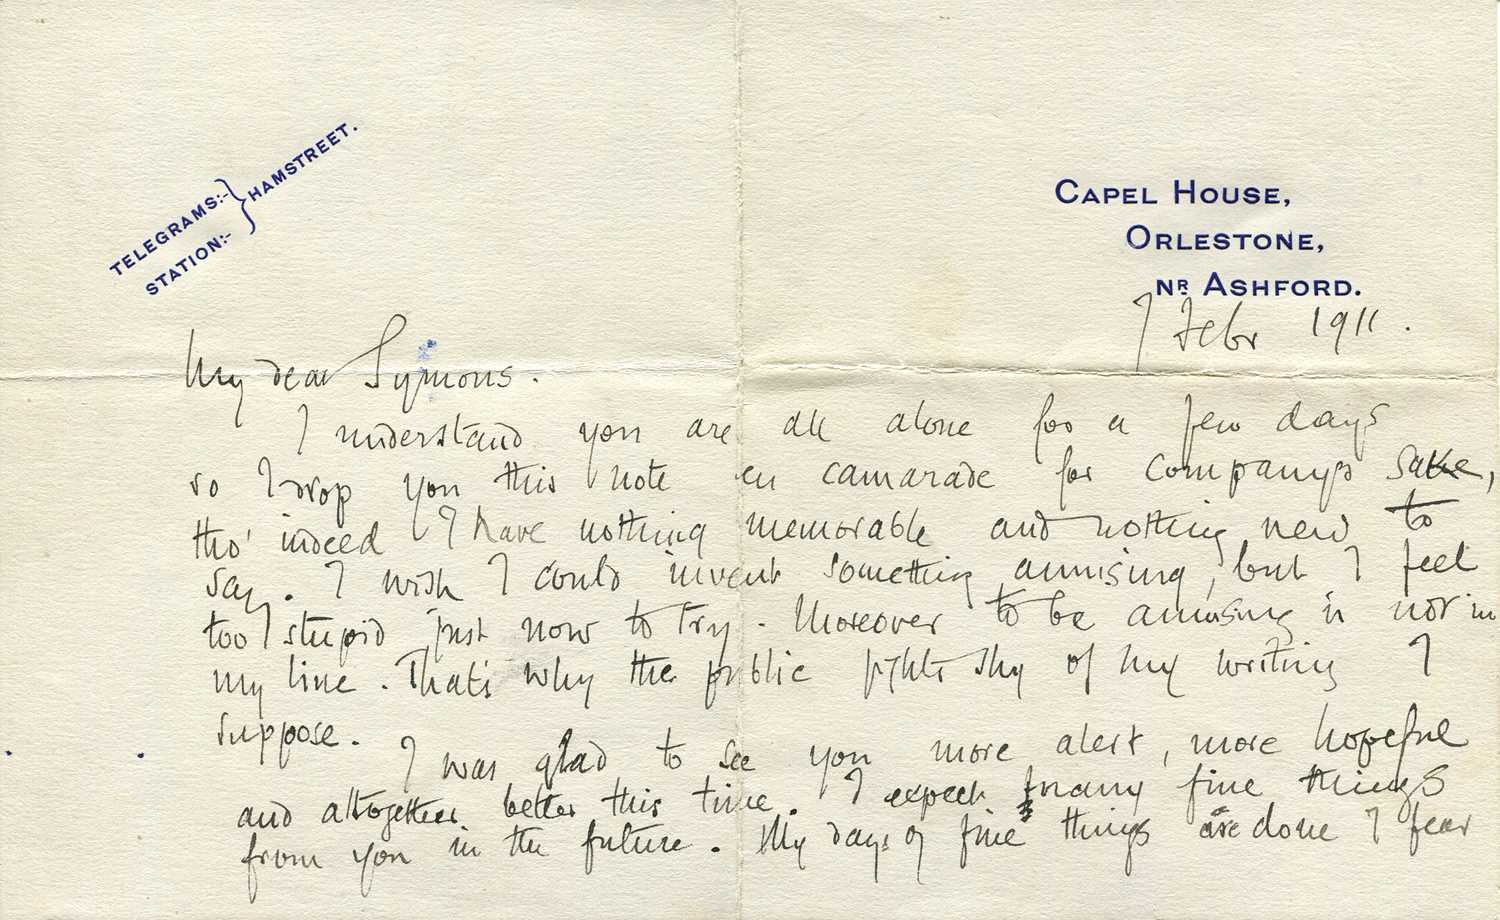 TELEGRAMS:-
STATION:-
HAMSTREET.
CAPEL HOUSE,
ORLESTONE,
NR ASHFORD.
7 Febr 1911.
My dear Symons.
I understand you are all alone for a few days
so I drop you this note en camarade for company's sake,
tho' indeed I have nothing memorable and nothing new to
say. I wish I could invent something amusing, but I feel
too stupid just now to try. Moreover to be amusing is not in
my line. That's why the public fights shy of my writing I
suppose.
I was glad to see you more alert, more hopeful
and altogether better this time. I expect many fine things
from you in the future. My days of fine things are done I fear